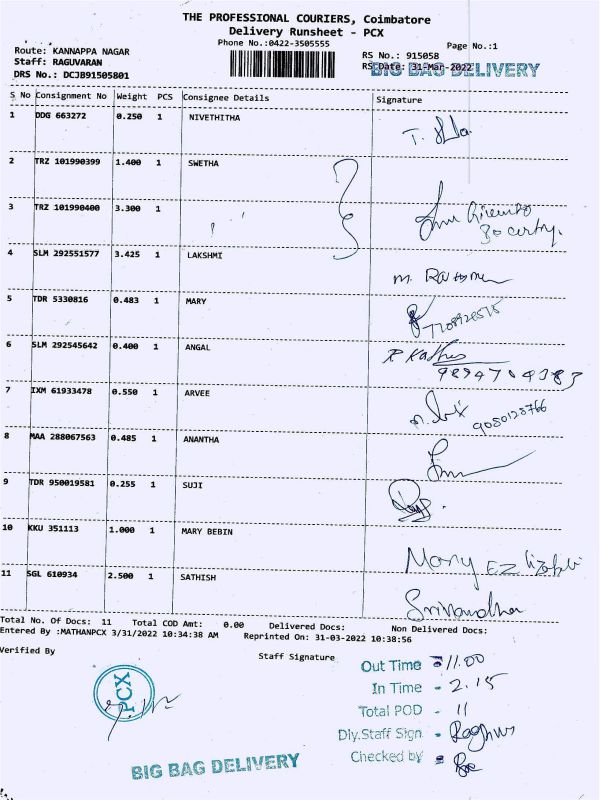 THE PROFESSIONAL COURIERS, Coimbatore
Delivery Runsheet - PCX
Phone No.:0422-3505555
Page No.:1
Route: KANNAPPA NAGAR
Staff: RAGUVARAN
DRS No.: DCJB91505801
RS No.: 915058
RS Date: 31-Mar-2022
BIG BAG DELIVERY
S No Consignment No Weight PCS Consignee Details Signature
1 DDG 663272 0.250 1 NIVETHITHA
2 TRZ 101990399 1.400 1 SWETHA
3 TRZ 101990400 3.300 1
4 SLM 292551577 3.425 1 LAKSHMI
5 TDR 5330816 0.483 1 MARY
7708926515
6 SLM 292545642 0.400 1 ANGAL
9894704383
7 IXM 61933478 0.550 1 ARVEE
9080128766
8 MAA 288067563 0.485 1 ANANTHA
9 TDR 950019581 0.255 1 SUJI
10 KKU 351113 1.000 1 MARY BEBIN
Mary
11 SGL 610934 2.500 1 SATHISH
Total No. Of Docs: 11 Total COD Amt: 0.00 Delivered Docs: Non Delivered Docs:
Entered By :MATHANPCX 3/31/2022 10:34:38 AM Reprinted On: 31-03-2022 10:38:56
Verified By
Staff Signature
PCX
Out Time - 11.00
In Time - 2.15
Total POD - 11
Dly.Staff Sign - Raghu
Checked by -
BIG BAG DELIVERY